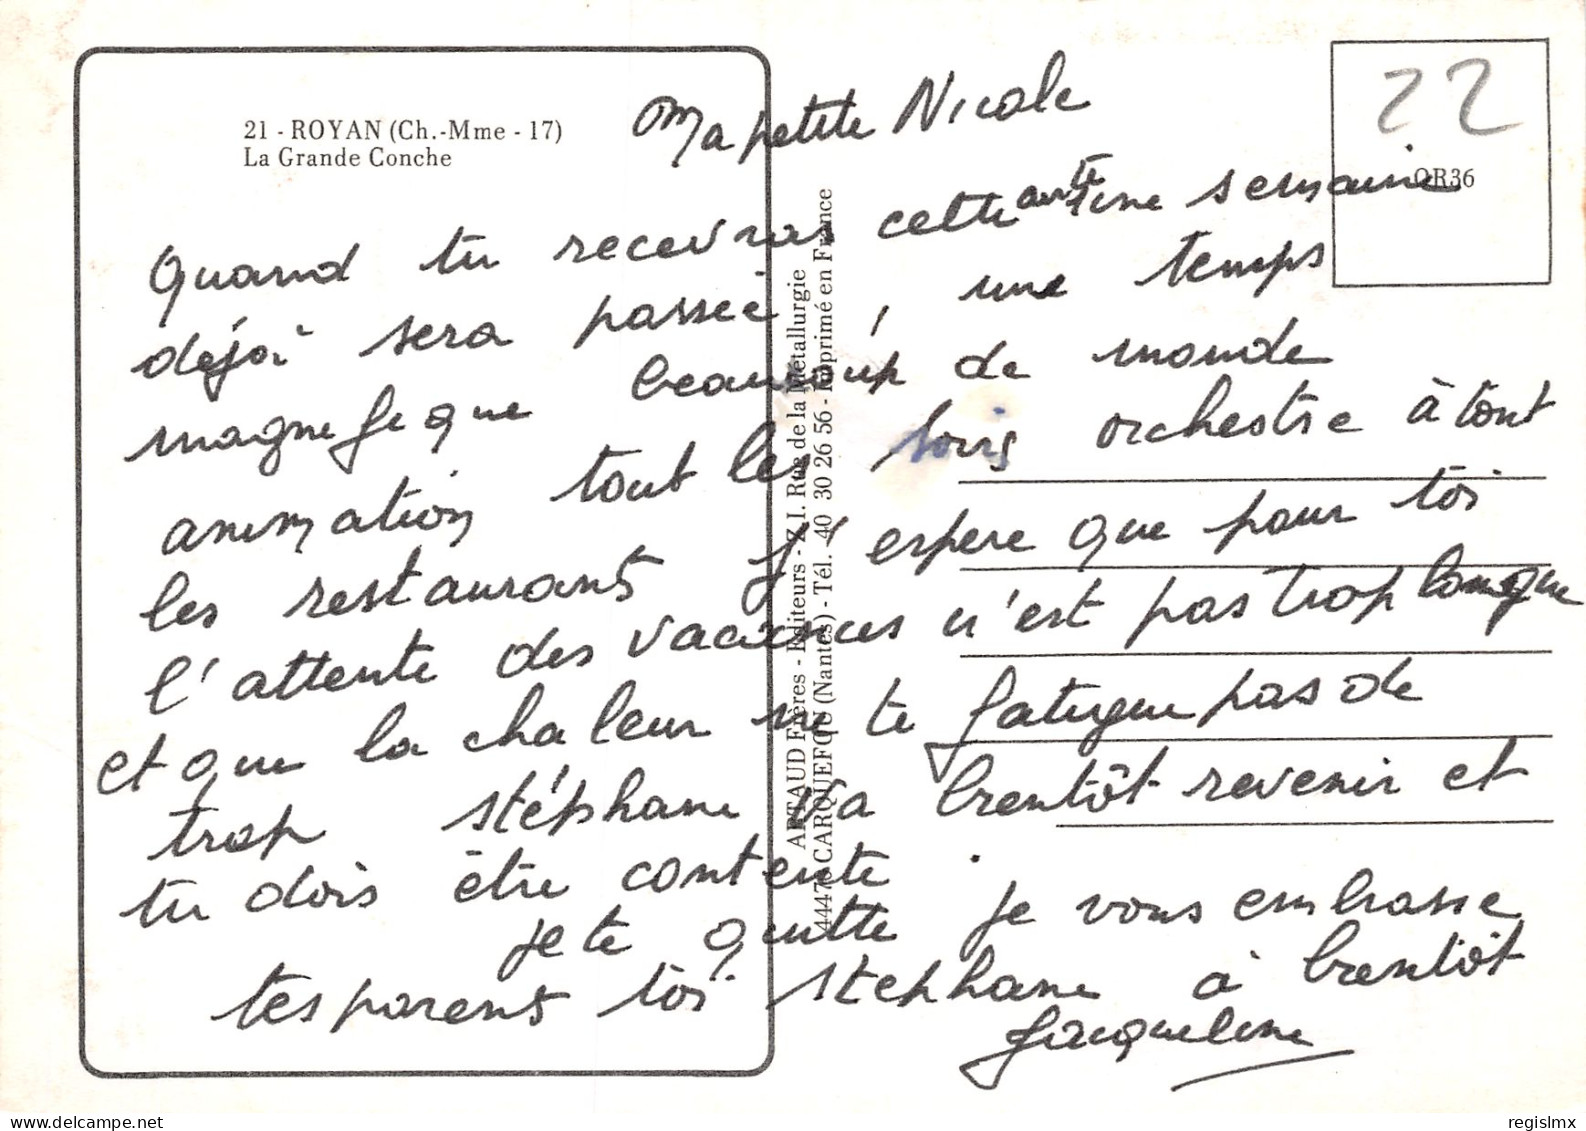 21 - ROYAN (Ch.-Mme - 17)
La Grande Conche
22
OR36
ARTAUD Frères - Editeurs - Z.I. Rue de la Métallurgie
44470 CARQUEFOU (Nantes) - Tél. 40 30 26 56 - Imprimé en France
Ma petite Nicole
Quand tu recevras cette autre semaine
déjà sera passée, une temps
magnefique beaucoup de monde
animation tout les soirs orchestre à tout
les restaurants J'espere que pour toi
l'attente des vacances n'est pas trop longue
et que la chaleur ne te fatigue pas de
trop stéphane va bientôt revenir et
tu dois être contente.
je te quitte je vous embrasse
tes parents toi stephane à bientôt
Jacqueline
regislmx